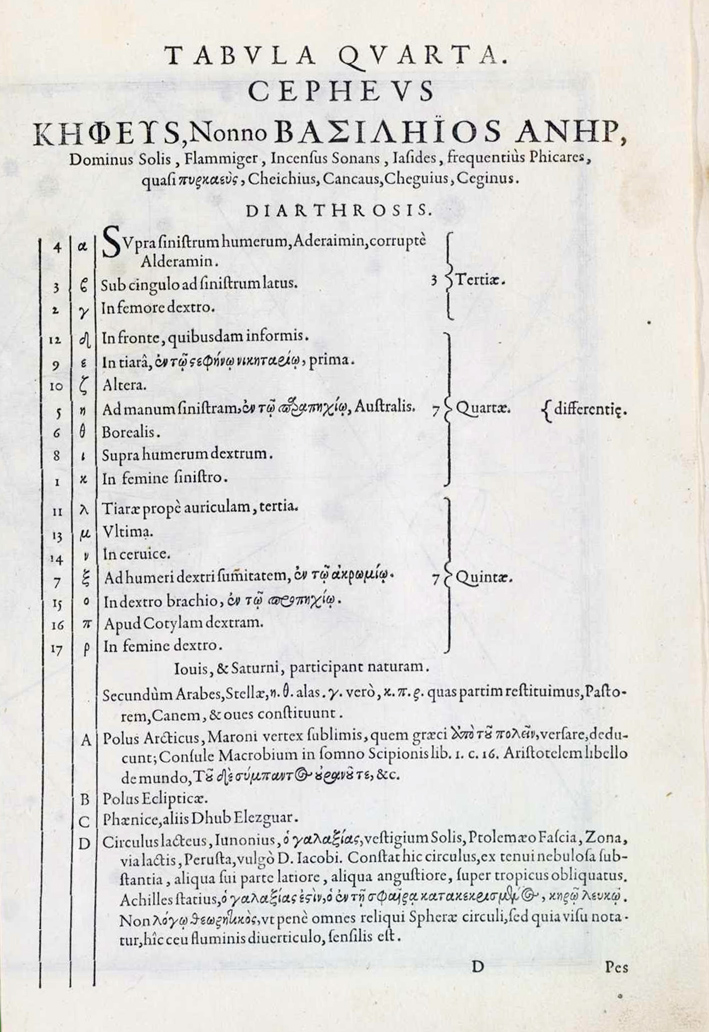 TABVLA QVARTA.
CEPHEVS
ΚΗΦΕΥS, Nonno ΒΑΣΙΛΗΪΟS ΑΝΗΡ,
Dominus Solis, Flammiger, Incensus Sonans, Iasides, frequentiùs Phicares,
quasi πυρκαεὺς, Cheichius, Cancaus, Cheguius, Ceginus.
DIARTHROSIS.
4 α SVpra sinistrum humerum, Aderaimin, corruptè
Alderamin.
3 β Sub cingulo ad sinistrum latus. 3 Tertiæ.
2 γ In femore dextro.
12 δ In fronte, quibusdam informis.
9 ε In tiarâ, ἐν τῷ ςεφήνῳ νικηταρίῳ, prima.
10 ζ Altera.
5 η Ad manum sinistram, ἐν τῷ παραπηχίῳ, Australis. 7 Quartæ. differentię.
6 θ Borealis.
8 ι Supra humerum dextrum.
1 κ In femine sinistro.
11 λ Tiaræ propè auriculam, tertia.
13 μ Vltima.
14 ν In ceruice.
7 ξ Ad humeri dextri sum̄itatem, ἐν τῷ ἀκρωμίῳ. 7 Quintæ.
15 ο In dextro brachio, ἐν τῷ προπηχίῳ.
16 π Apud Cotylam dextram.
17 ρ In femine dextro.
Iouis, & Saturni, participant naturam.
Secundùm Arabes, Stellæ, η. θ. alas. γ. verò, κ. π. ρ. quas partim restituimus, Pasto-
rem, Canem, & oues constituunt.
A Polus Arcticus, Maroni vertex sublimis, quem græci ἀπὸ τοῦ πολεῖν, versare, dedu-
cunt; Consule Macrobium in somno Scipionis lib. 1. c. 16. Aristotelem libello
de mundo, Τοῦ δὲ σύμπαντος οὐρανοῦ τε, &c.
B Polus Eclipticæ.
C Phænice, aliis Dhub Elezguar.
D Circulus lacteus, Iunonius, ὁ γαλαξίας, vestigium Solis, Ptolemæo Fascia, Zona,
via lactis, Perusta, vulgò D. Iacobi. Constat hic circulus, ex tenui nebulosa sub-
stantia, aliqua sui parte latiore, aliqua angustiore, super tropicus obliquatus.
Achilles statius, ὁ γαλαξίας ἐςὶν, ὁ ἐν τῇ σφαίρᾳ κατακεκρισμένος, κηρῷ λευκῷ.
Non λόγῳ θεωρητικὸς, vt penè omnes reliqui Spheræ circuli, sed quia visu nota-
tur, hîc ceu fluminis diuerticulo, sensilis est.
D Pes